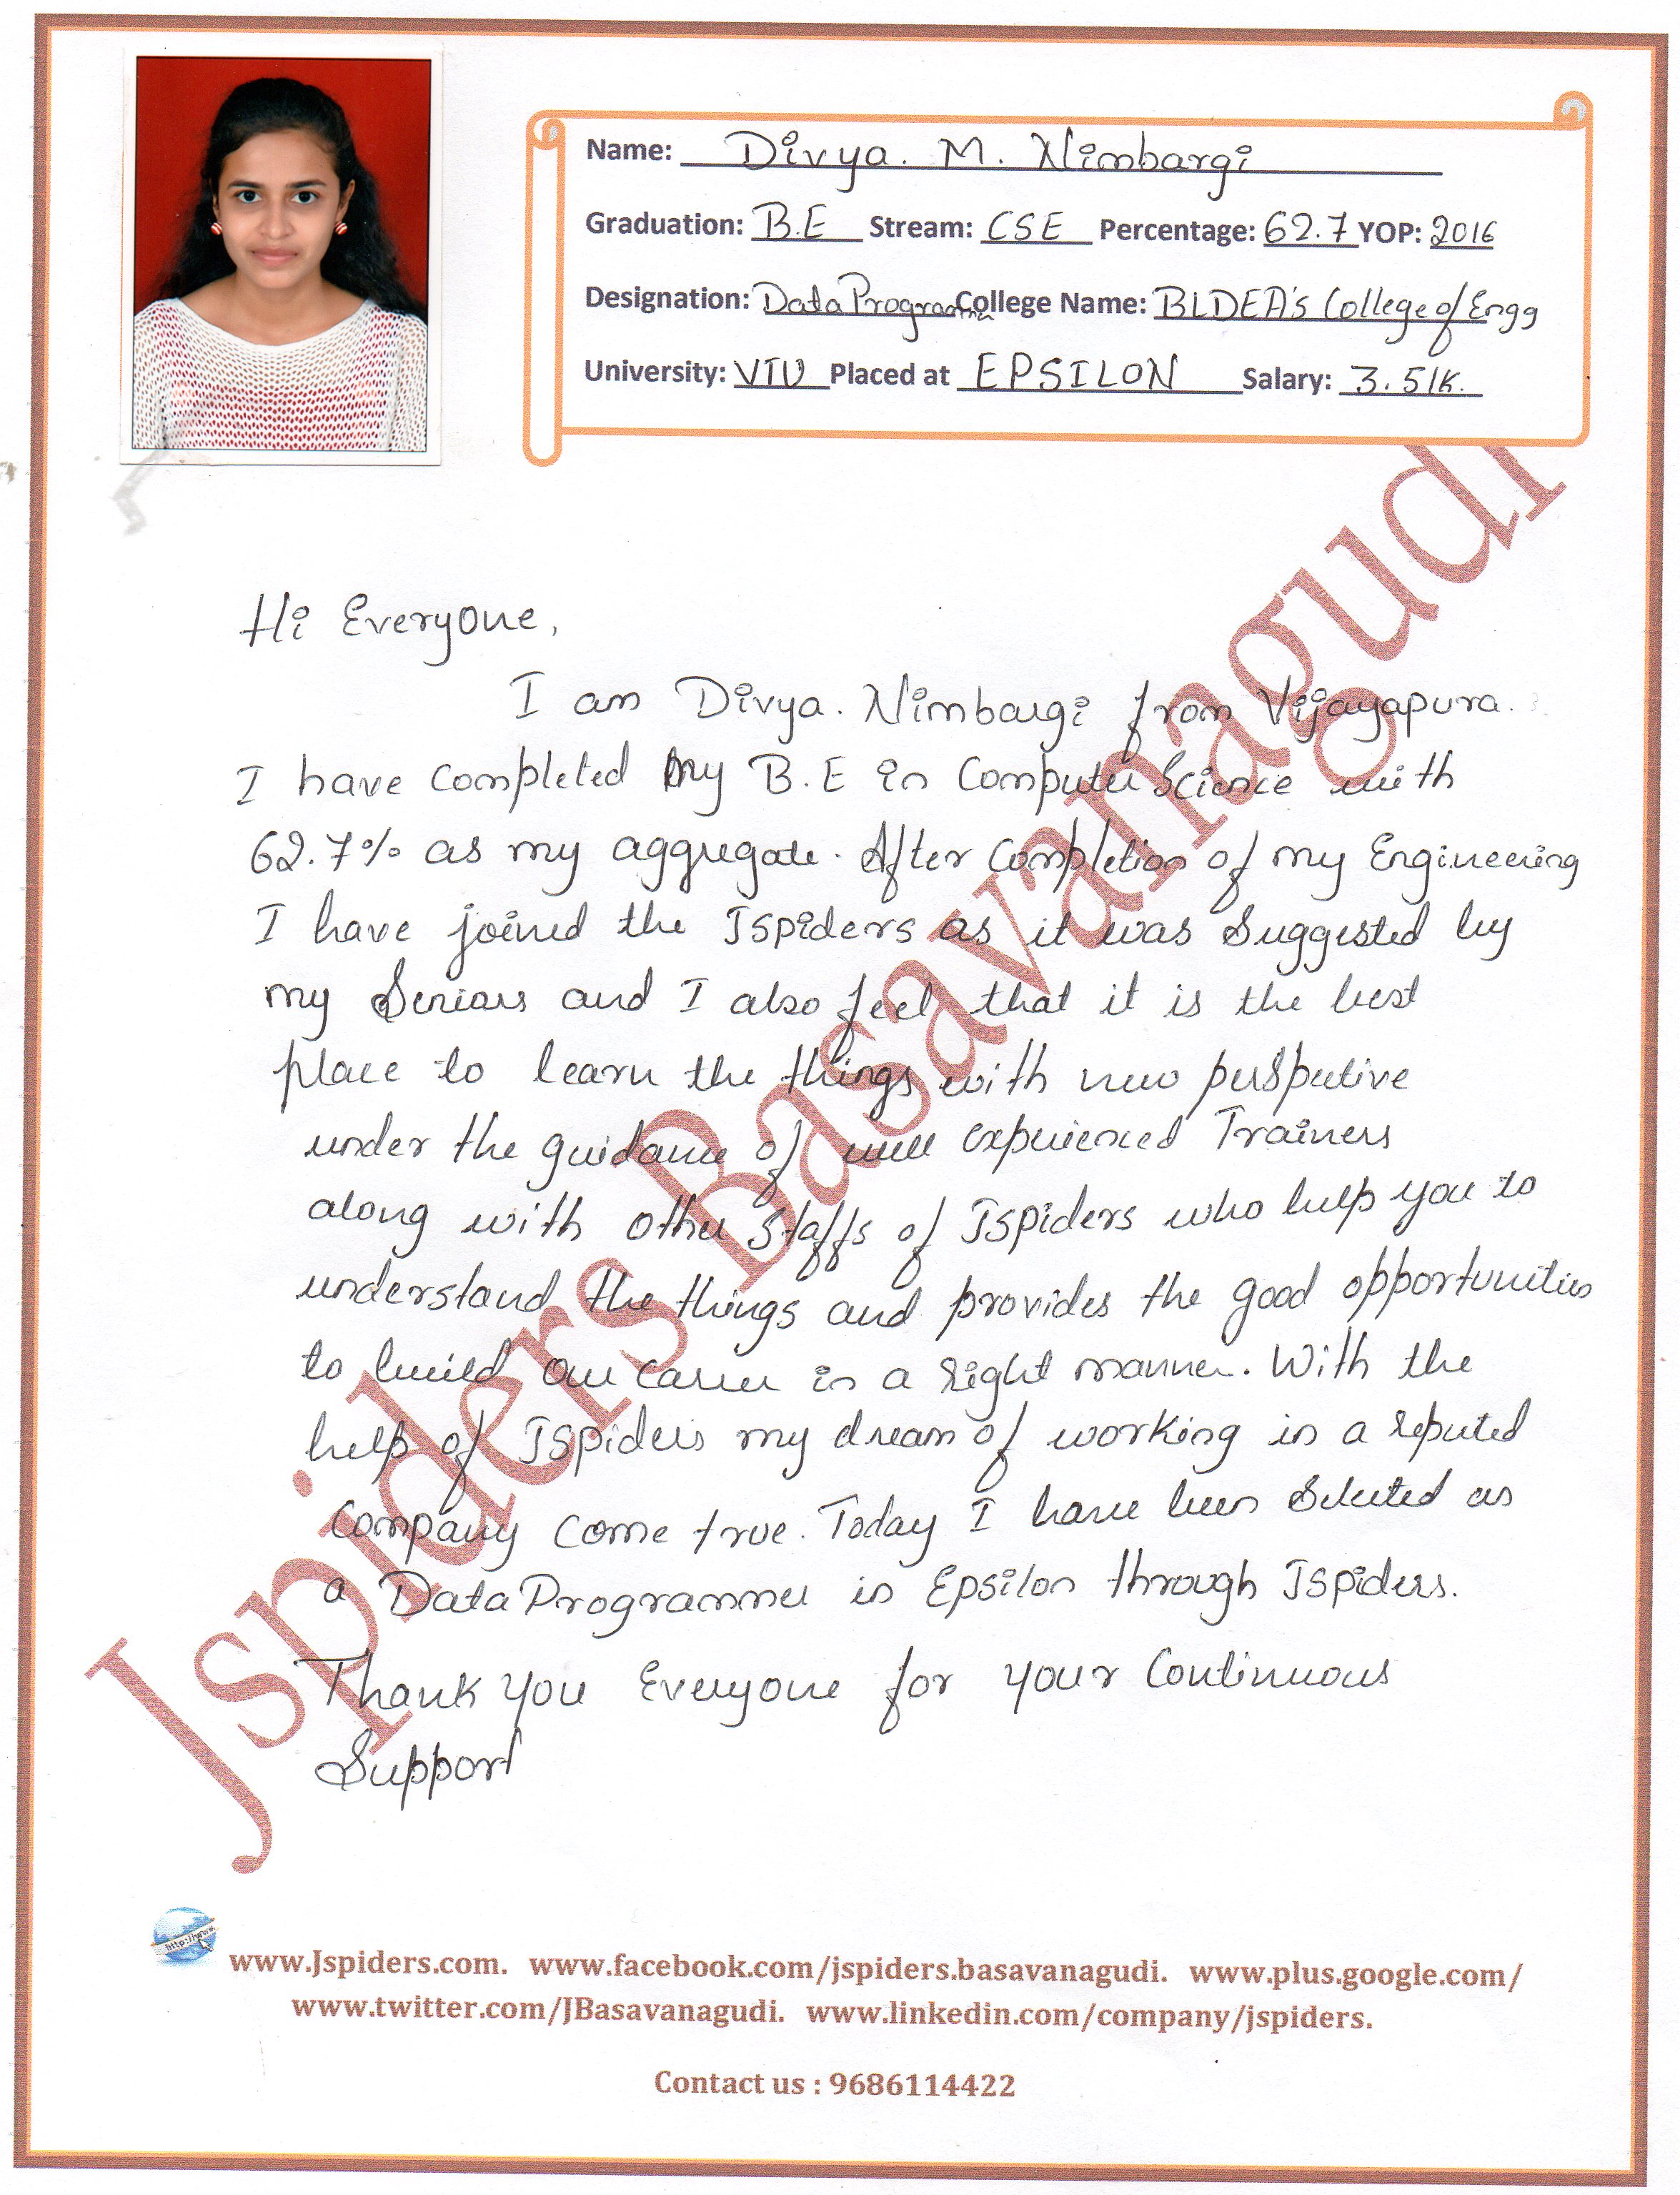 Name: Divya. M. Nimbargi
Graduation: B.E Stream: CSE Percentage: 62.7 YOP: 2016
Designation: Data Programmer College Name: BLDEA's College of Engg
University: VTU Placed at EPSILON Salary: 3.51K.
Hi Everyone,
I am Divya. Nimbargi from Vijayapura.
I have completed My B.E in Computer Science with
62.7% as my aggregate. After Completion of my Engineering
I have joined the JSpiders as it was Suggested by
my Seniors and I also feel that it is the best
place to learn the things with new perspective
under the guidance of well experienced Trainers
along with other Staffs of JSpiders who help you to
understand the things and provides the good opportunities
to build our career in a right manner. With the
help of JSpiders my dream of working in a reputed
Company Come true. Today I have been Selected as
a Data Programmer in Epsilon through JSpiders.
Thank You Everyone for your Continuous
Support
Jspiders Basavanagudi
http://www.
www.Jspiders.com. www.facebook.com/jspiders.basavanagudi. www.plus.google.com/
www.twitter.com/JBasavanagudi. www.linkedin.com/company/jspiders.
Contact us : 9686114422